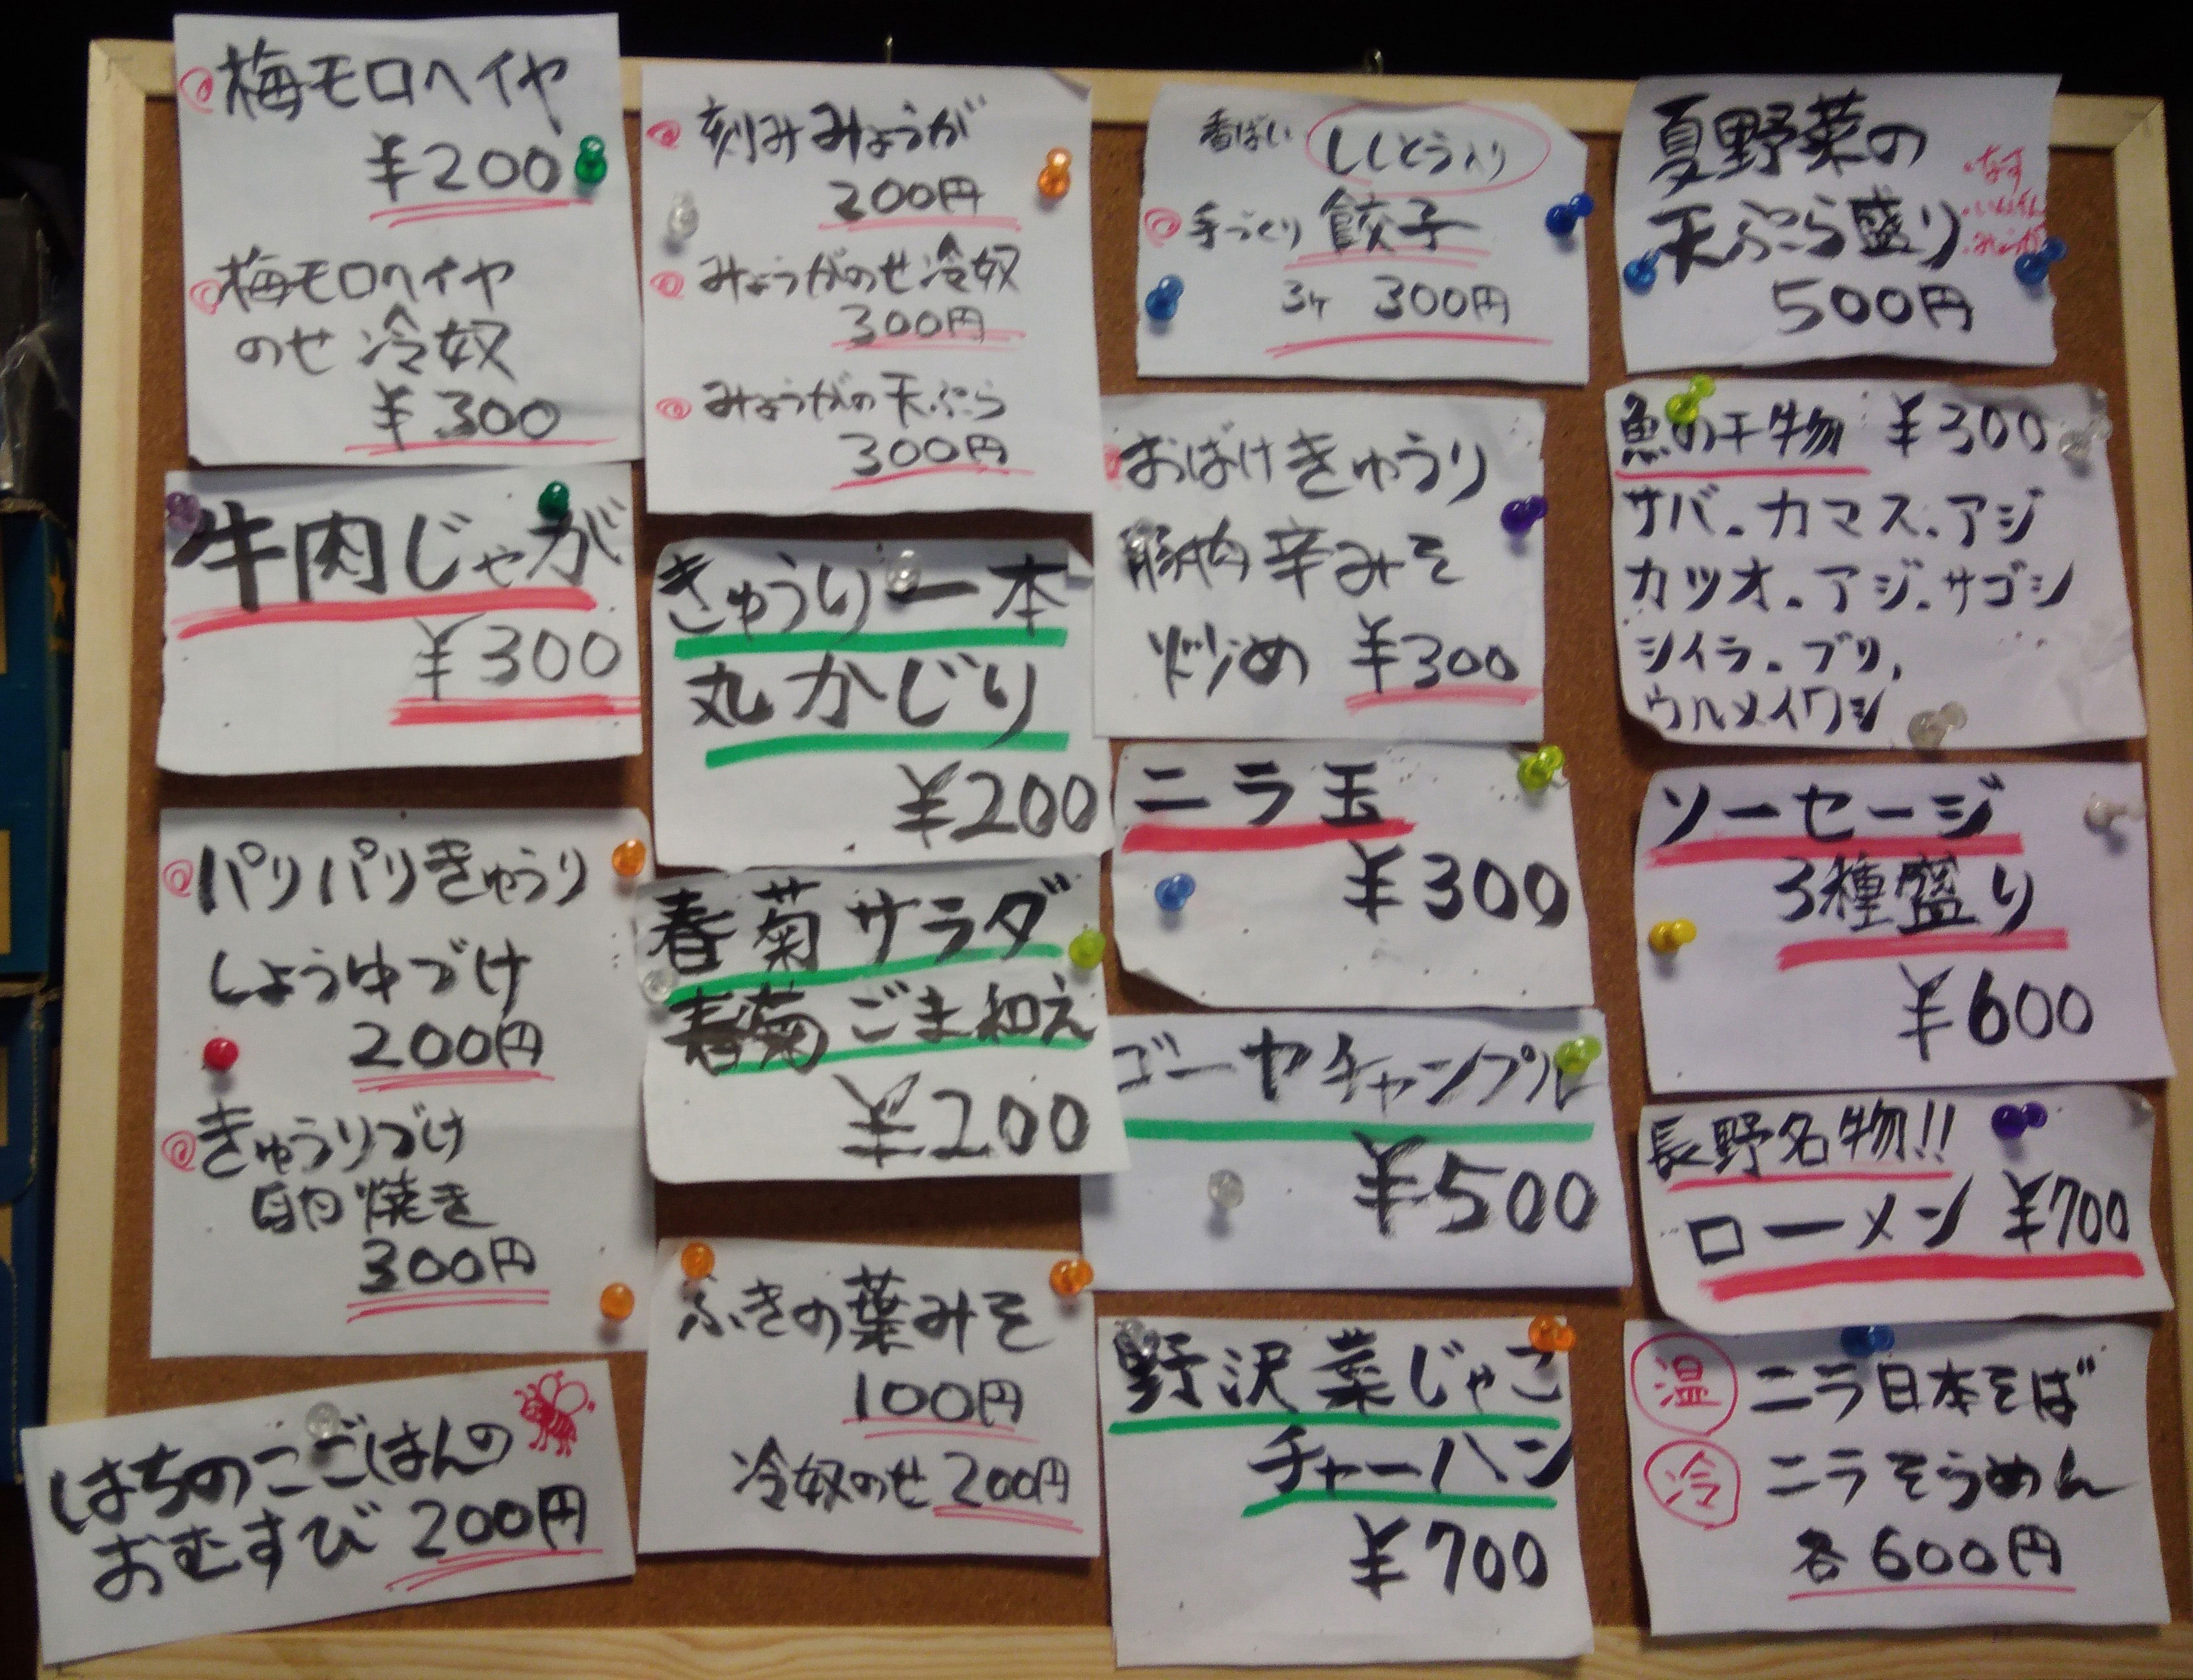 梅モロヘイヤ
¥200
梅モロヘイヤ
のせ冷奴
¥300
牛肉じゃが
¥300
パリパリきゅうり
しょうゆづけ
200円
きゅうりづけ
卵焼き
300円
はちのこごはんの
おむすび 200円
刻みみょうが
200円
みょうがのせ冷奴
300円
みょうがの天ぷら
300円
きゅうり一本
丸かじり
¥200
春菊サラダ
春菊ごま和え
¥200
ふきの葉みそ
100円
冷奴のせ 200円
香ばい ししとう入り
手づくり 餃子
3ヶ 300円
おばけきゅうり
豚肉辛みそ
炒め ¥300
ニラ玉
¥300
ゴーヤチャンプル
¥500
野沢菜じゃこ
チャーハン
¥700
夏野菜の
天ぷら盛り
・なす
・いんげん
・みょうが
500円
魚の干物 ¥300
サバ、カマス、アジ
カツオ、アジ、サゴシ
シイラ、ブリ、
ウルメイワシ
ソーセージ
3種盛り
¥600
長野名物!!
ローメン ¥700
温 ニラ日本そば
冷 ニラそうめん
各600円